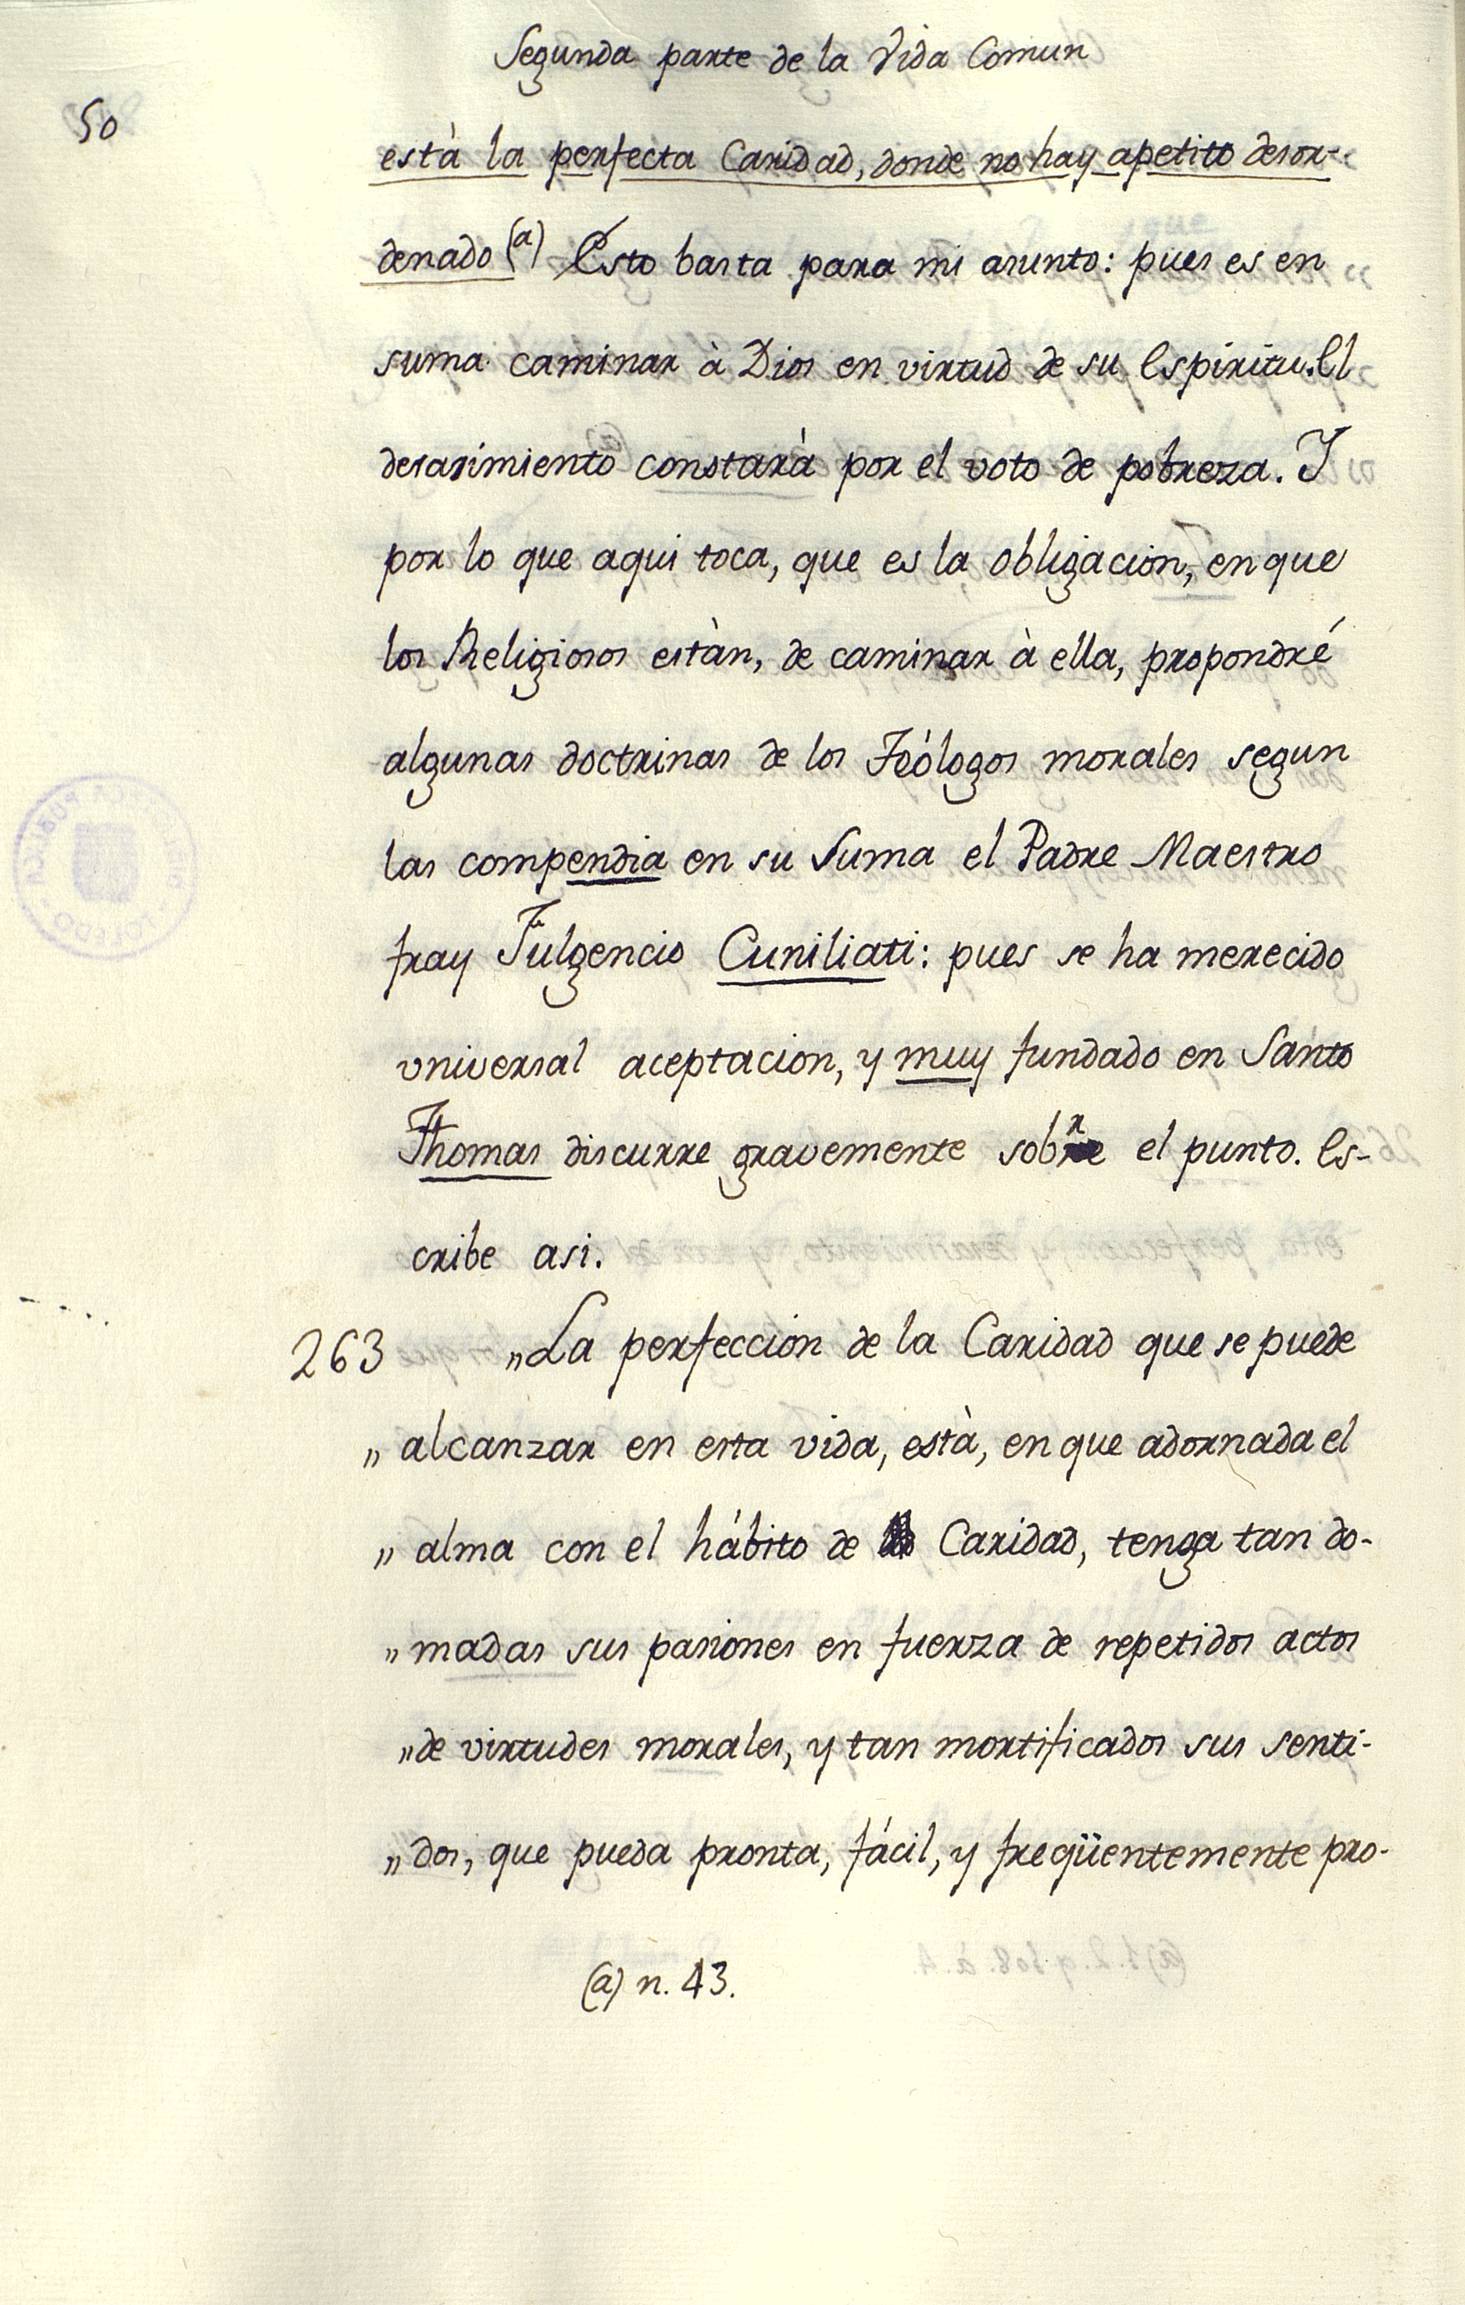 Segunda parte de la Vida Comun
50
està la perfecta Caridad, donde no hay apetito desor-
denado (a) Esto basta para mi asunto: pues es en
suma caminar à Dios en virtud de su Espiritu. El
desasimiento constarà por el voto de pobreza. I
por lo que aqui toca, que es la obligacion, en que
los Religiosos estàn, de caminar à ella, propondré
algunas doctrinas de los Teólogos morales segun
las compendia en su Suma el Padre Maestro
fray Fulgencio Cuniliati: pues se ha merecido
vniversal aceptacion, y muy fundado en Santo
Thomas discurre gravemente sobre el punto. Es-
cribe asi.
263 „La perfeccion de la Caridad que se puede
„ alcanzar en esta vida, està, en que adornada el
„ alma con el hábito de Caridad, tenga tan do-
„ madas sus pasiones en fuerza de repetidos actos
„ de virtudes morales, y tan mortificados sus senti-
„ dos, que pueda pronta, fácil, y freqüentemente pro-
(a) n. 43.